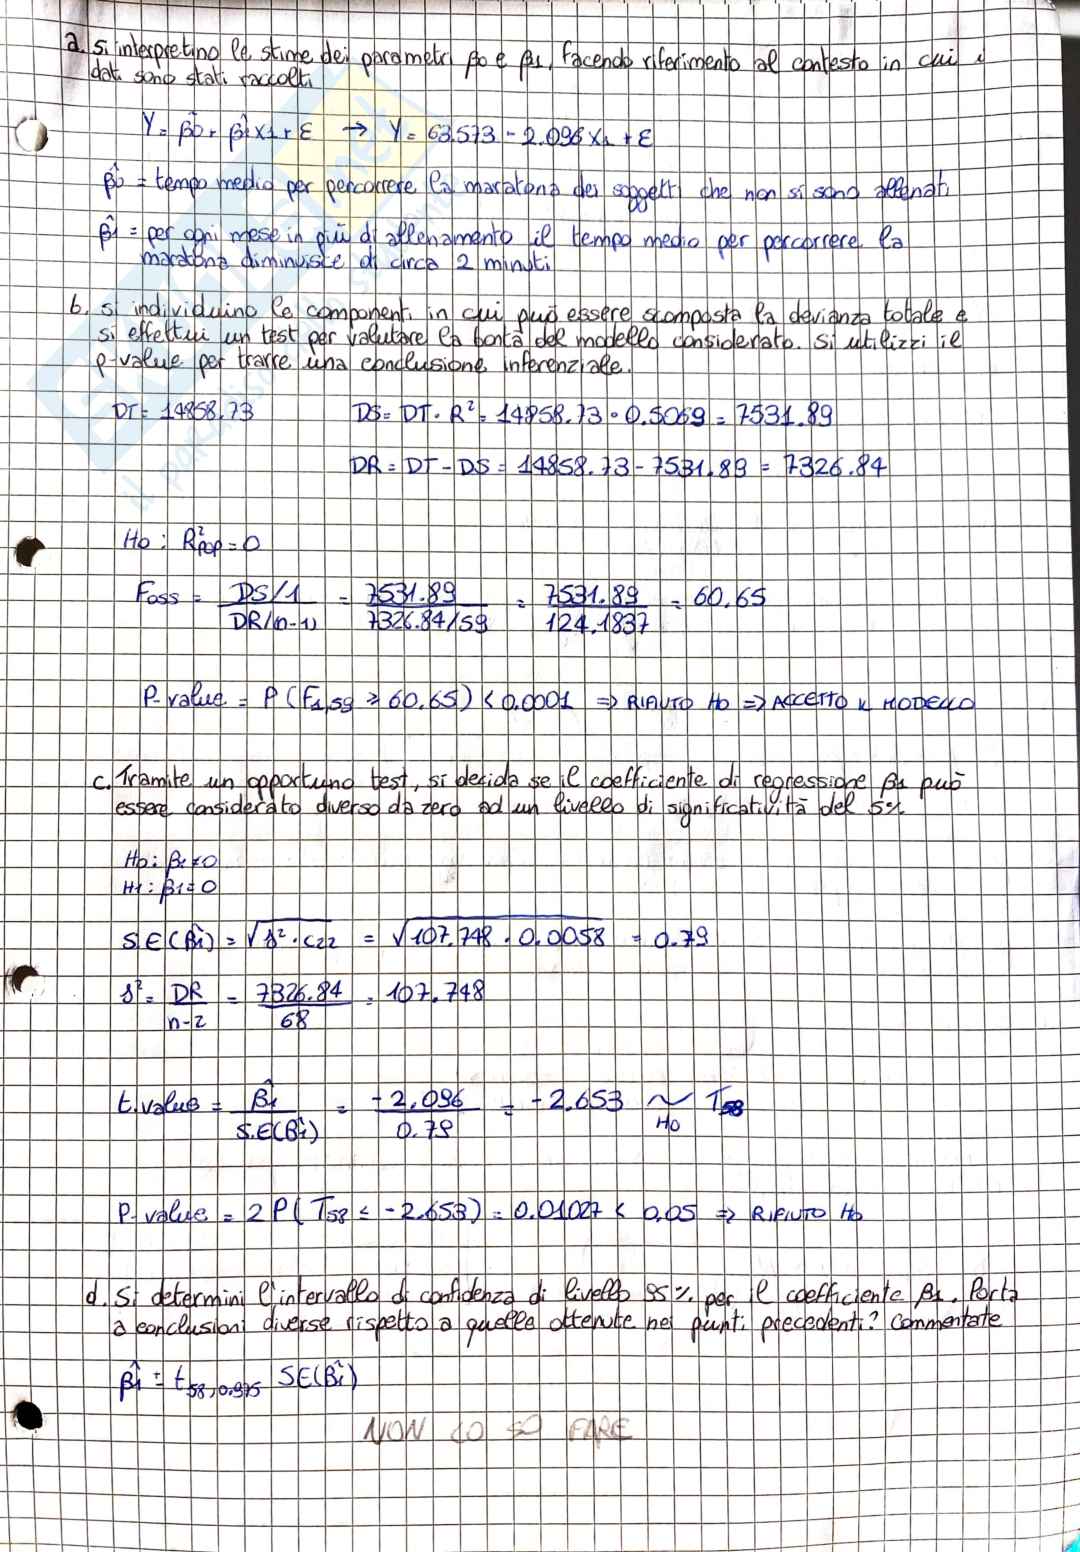 a. Si interpretino le stime dei parametri β0 e β1, facendo riferimento al contesto in cui i
dati sono stati raccolti
Y = β̂0 + β̂1x1 + ε → Y = 63.573 - 2.096 x1 + ε
β̂0 = tempo medio per percorrere la maratona dei soggetti che non si sono allenati
β̂1 = per ogni mese in più di allenamento il tempo medio per percorrere la
maratona diminuisce di circa 2 minuti
b. si individuino le componenti in cui può essere scomposta la devianza totale e
si effettui un test per valutare la bontà del modello considerato. Si utilizzi il
p-value per trarre una conclusione inferenziale.
DT = 14858.73 DS = DT · R² = 14858.73 · 0.5069 = 7531.89
DR = DT - DS = 14858.73 - 7531.89 = 7326.84
H0 : R²POP = 0
Foss = DS/1 / DR/(n-1) = 7531.89 / 7326.84/59 = 7531.89 / 124.1837 = 60.65
P-value = P (F1,59 ≥ 60.65) < 0.0001 => RIFIUTO H0 => ACCETTO IL MODELLO
c. Tramite un opportuno test, si decida se il coefficiente di regressione β1 può
essere considerato diverso da zero ad un livello di significatività del 5%
H0: β1≠0
H1: β1=0
S.E(β̂1) = √s²·c22 = √107.748 · 0.0058 = 0.79
s² = DR / n-2 = 7326.84 / 68 = 107.748
t.value = β̂1 / S.E(β̂1) = -2.096 / 0.79 = -2.653 ~H0 T58
P-value = 2 P( T58 ≤ -2.653) = 0.01027 < 0.05 => RIFIUTO H0
d. Si determini l'intervallo di confidenza di livello 95% per il coefficiente β1. Porta
a conclusioni diverse rispetto a quelle ottenute nei punti precedenti? Commentate
β̂1 ± t58,0.975 SE(β̂1)
NON LO SO FARE